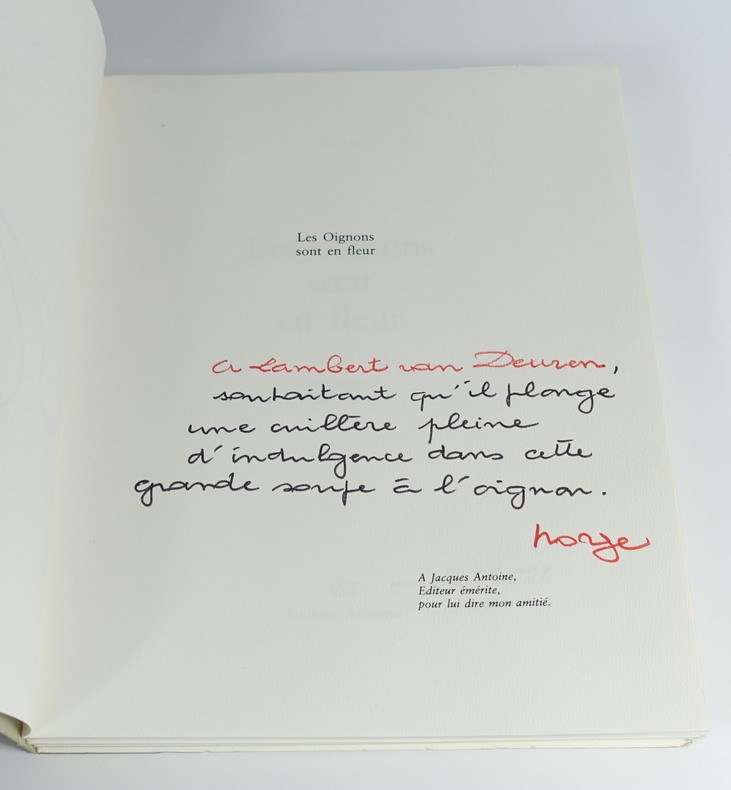 Les Oignons
sont en fleur
A Lambert van Deuren,
souhaitant qu'il plonge
une cuillère pleine
d'indulgence dans cette
grande soupe à l'oignon.
norge
A Jacques Antoine,
Editeur émérite,
pour lui dire mon amitié.